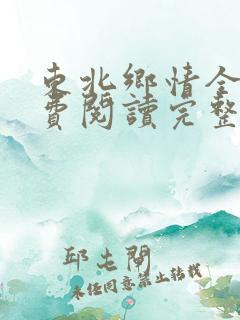 東北鄉情全
費閱讀完整
邱屯閘
未經同意禁止转载